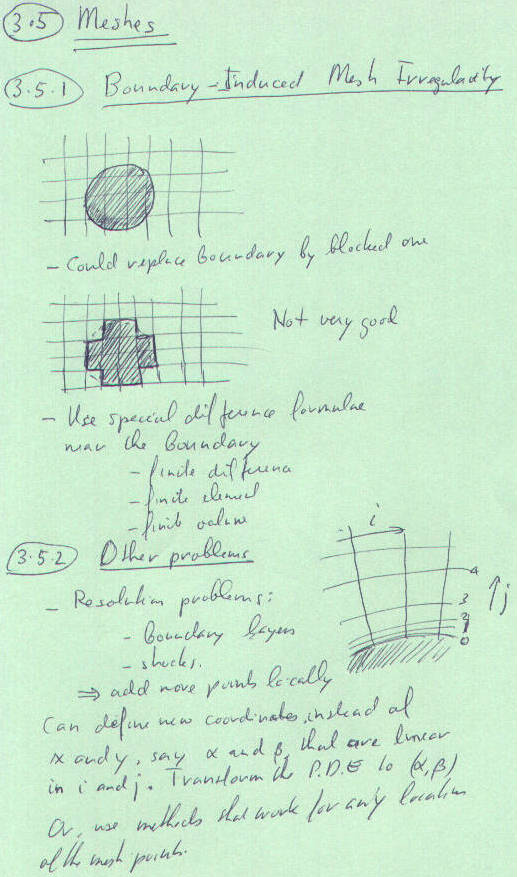 3.5 Meshes
3.5.1 Boundary-Induced Mesh Irregularity
- Could replace boundary by blocked one
Not very good
- Use special difference formulae
near the Boundary
- finite difference
- finite element
- finite volume
3.5.2 Other problems
- Resolution problems:
- Boundary layers
- shocks.
⇒ add more points locally
i
4
3
2
1
0
↑j
Can define new coordinates, instead of
x and y, say α and β, that are linear
in i and j. Transform the P.D.E to (α,β)
Or, use methods that work for any location
of the mesh points.